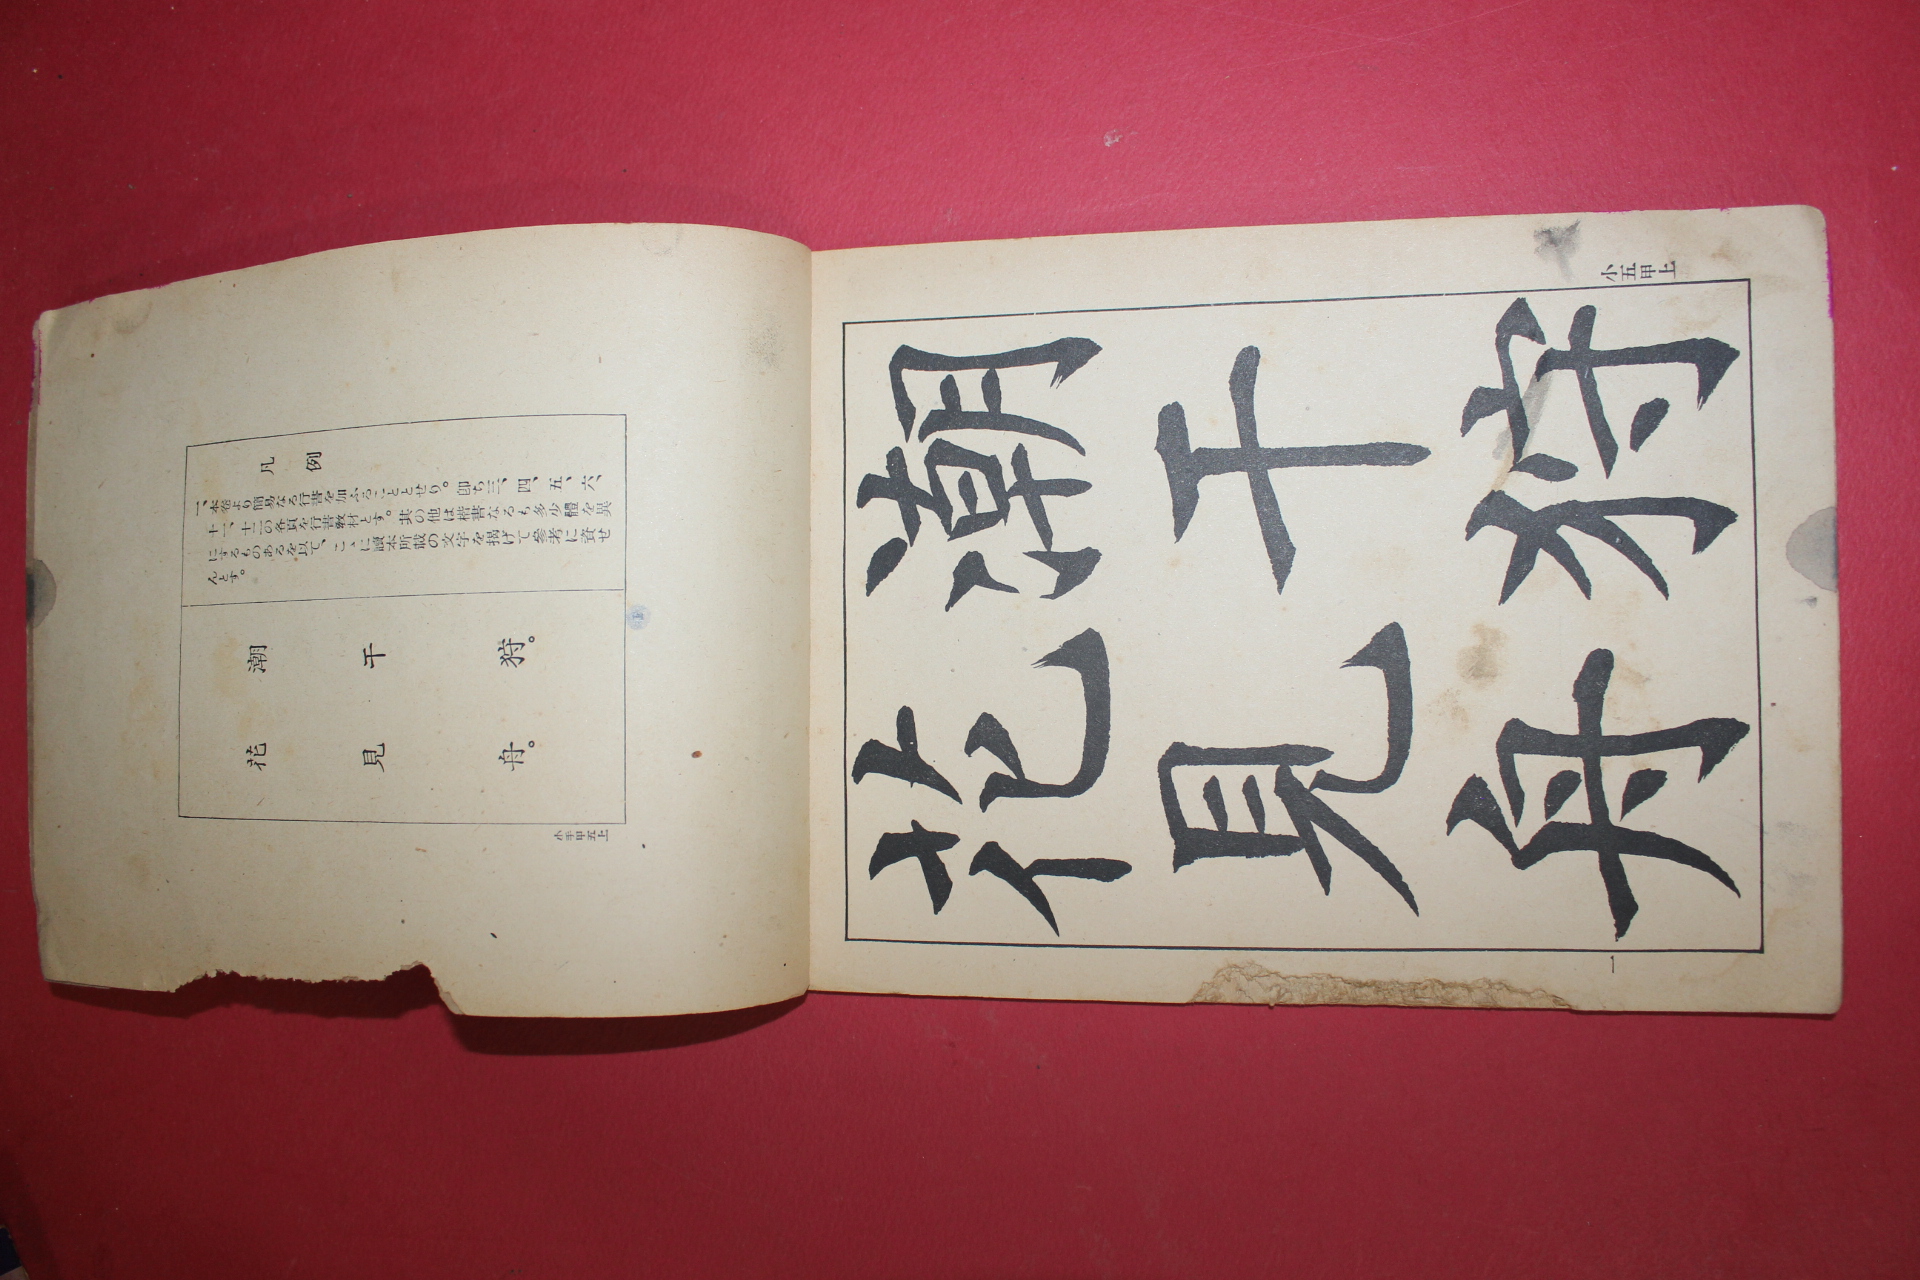 凡例
一、本卷より簡易なる行書を加ふることとせり。卽ち三、四、五、六、
十一、十二の各頁を行書敎材とす。其の他は楷書なるも多少體を異
にするものあるを以て、こゝに讀本所載の文字を揭げて參考に資せ
んとす。
潮干狩。
花見舟。
小手甲五上
小五甲上
潮干狩
花見舟
一